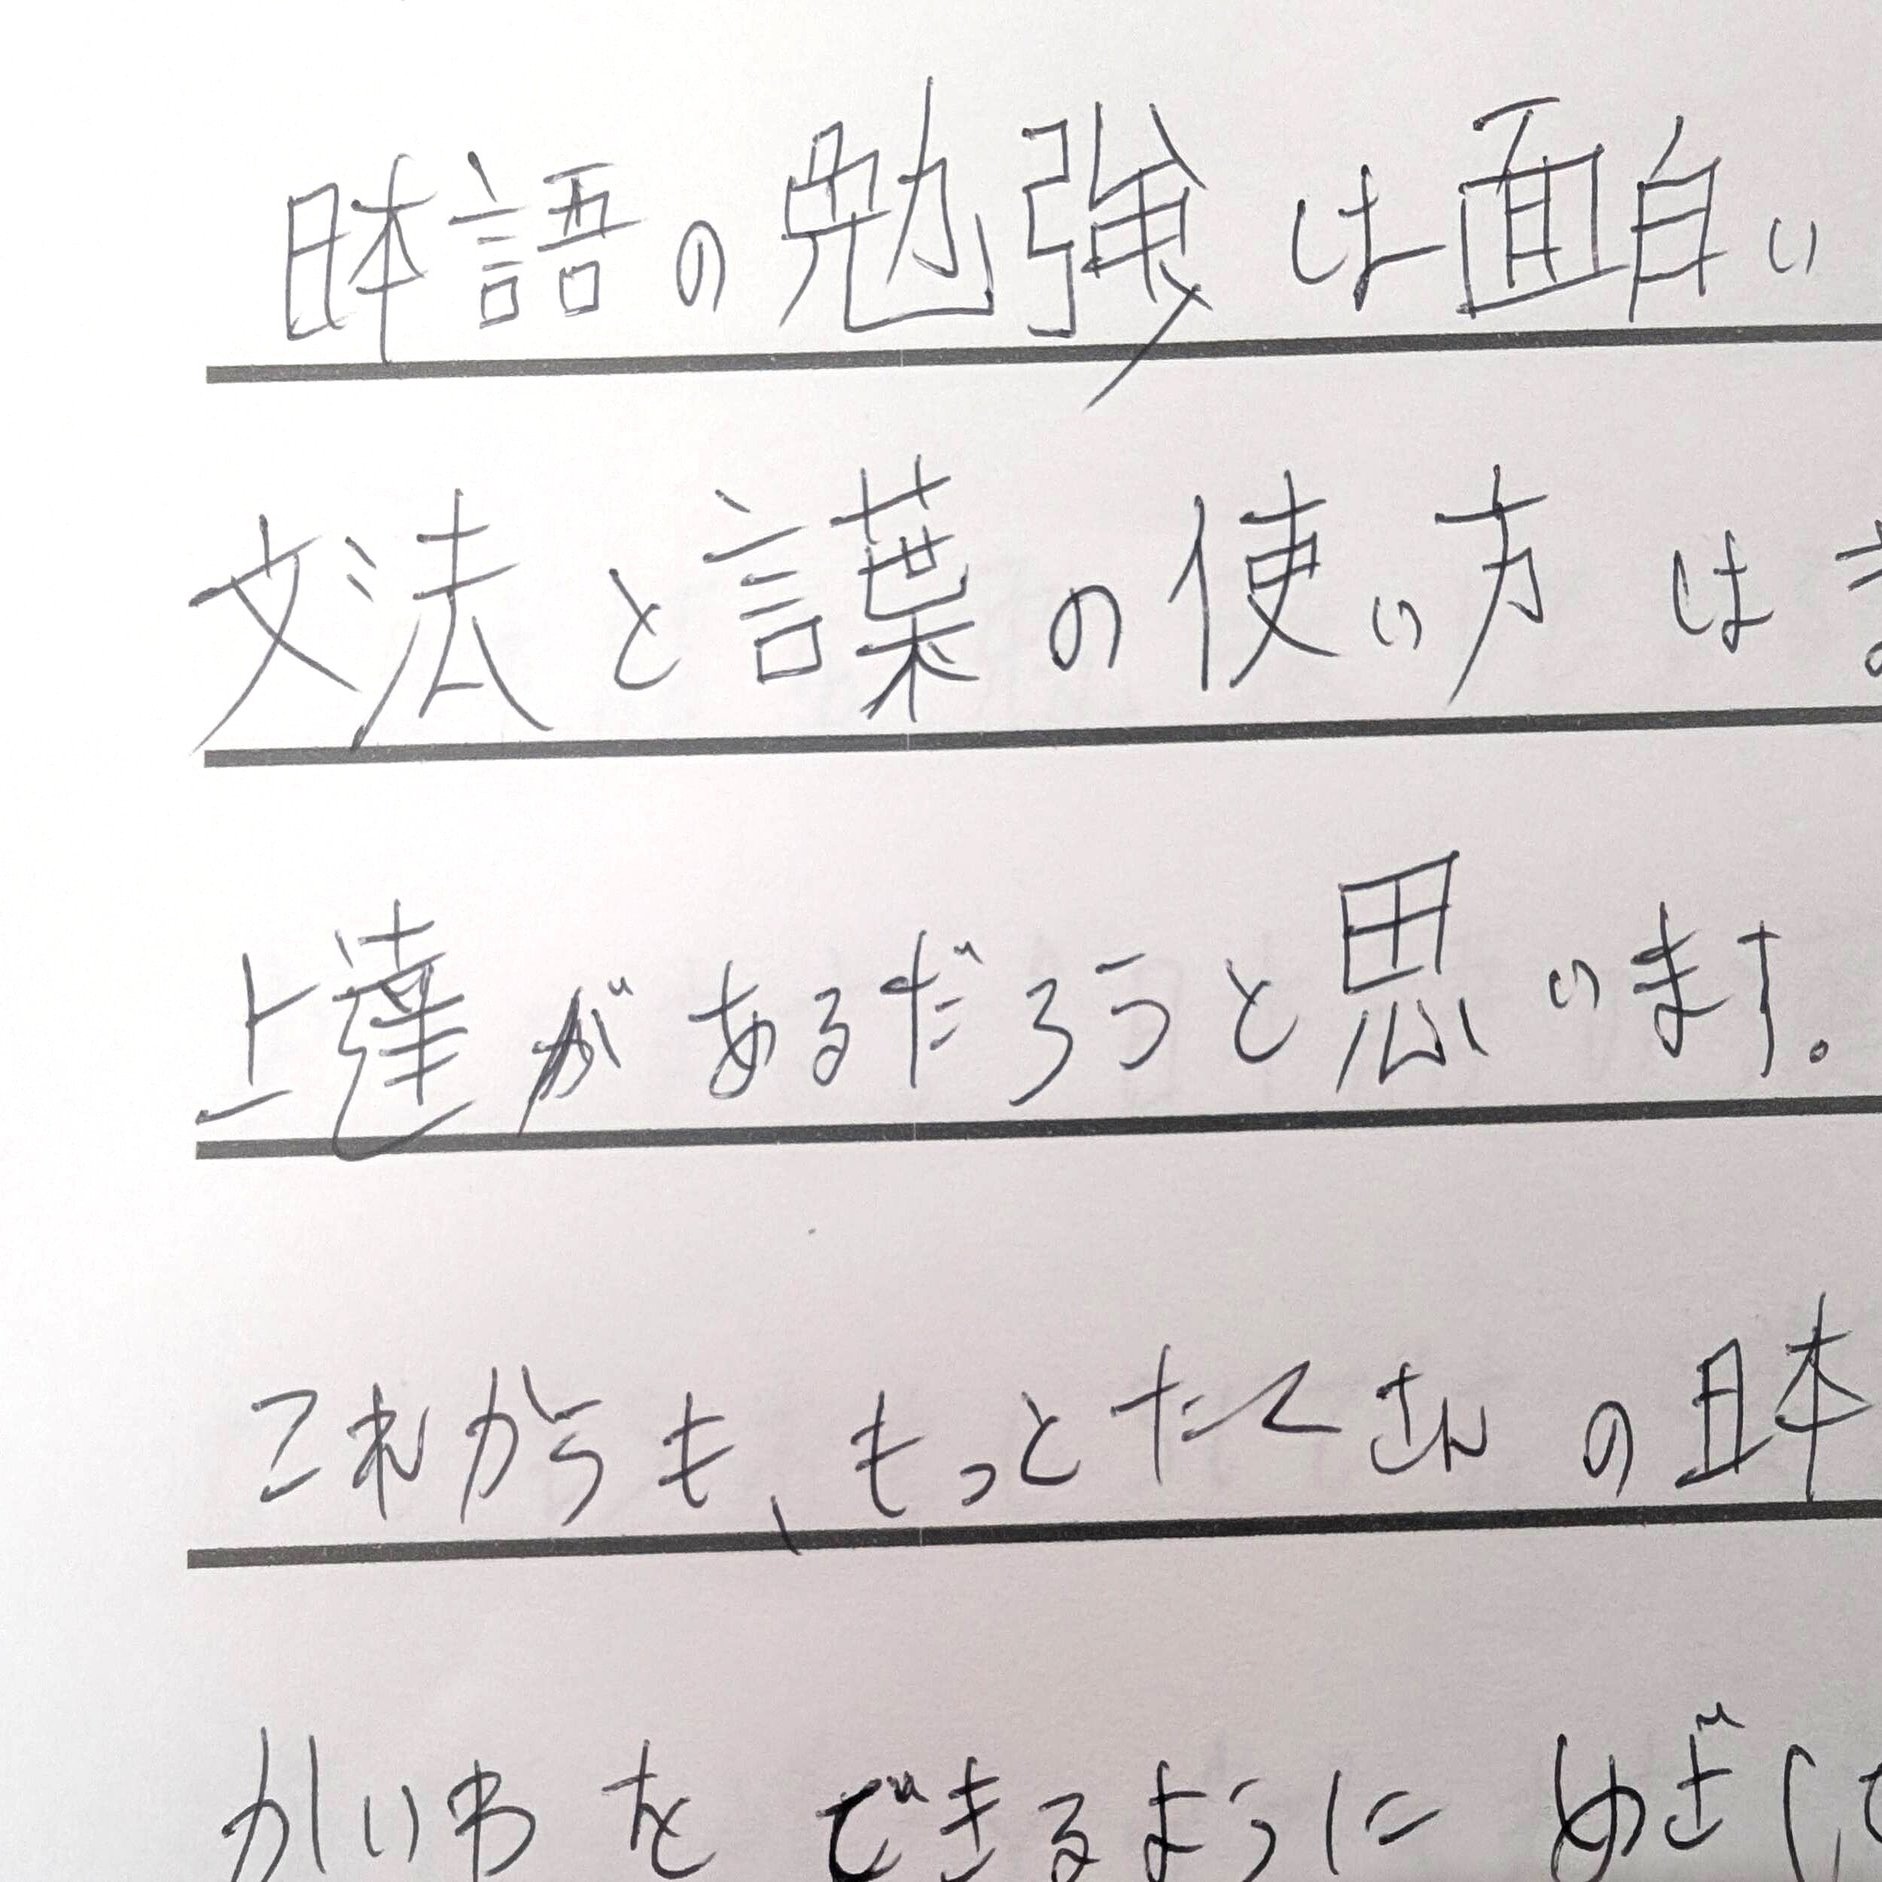 日本語の勉強は面白い
文法と言葉の使い方はま
上達があるだろうと思います。
これからも、もっとたくさんの日本
かいわをできるようにめざし